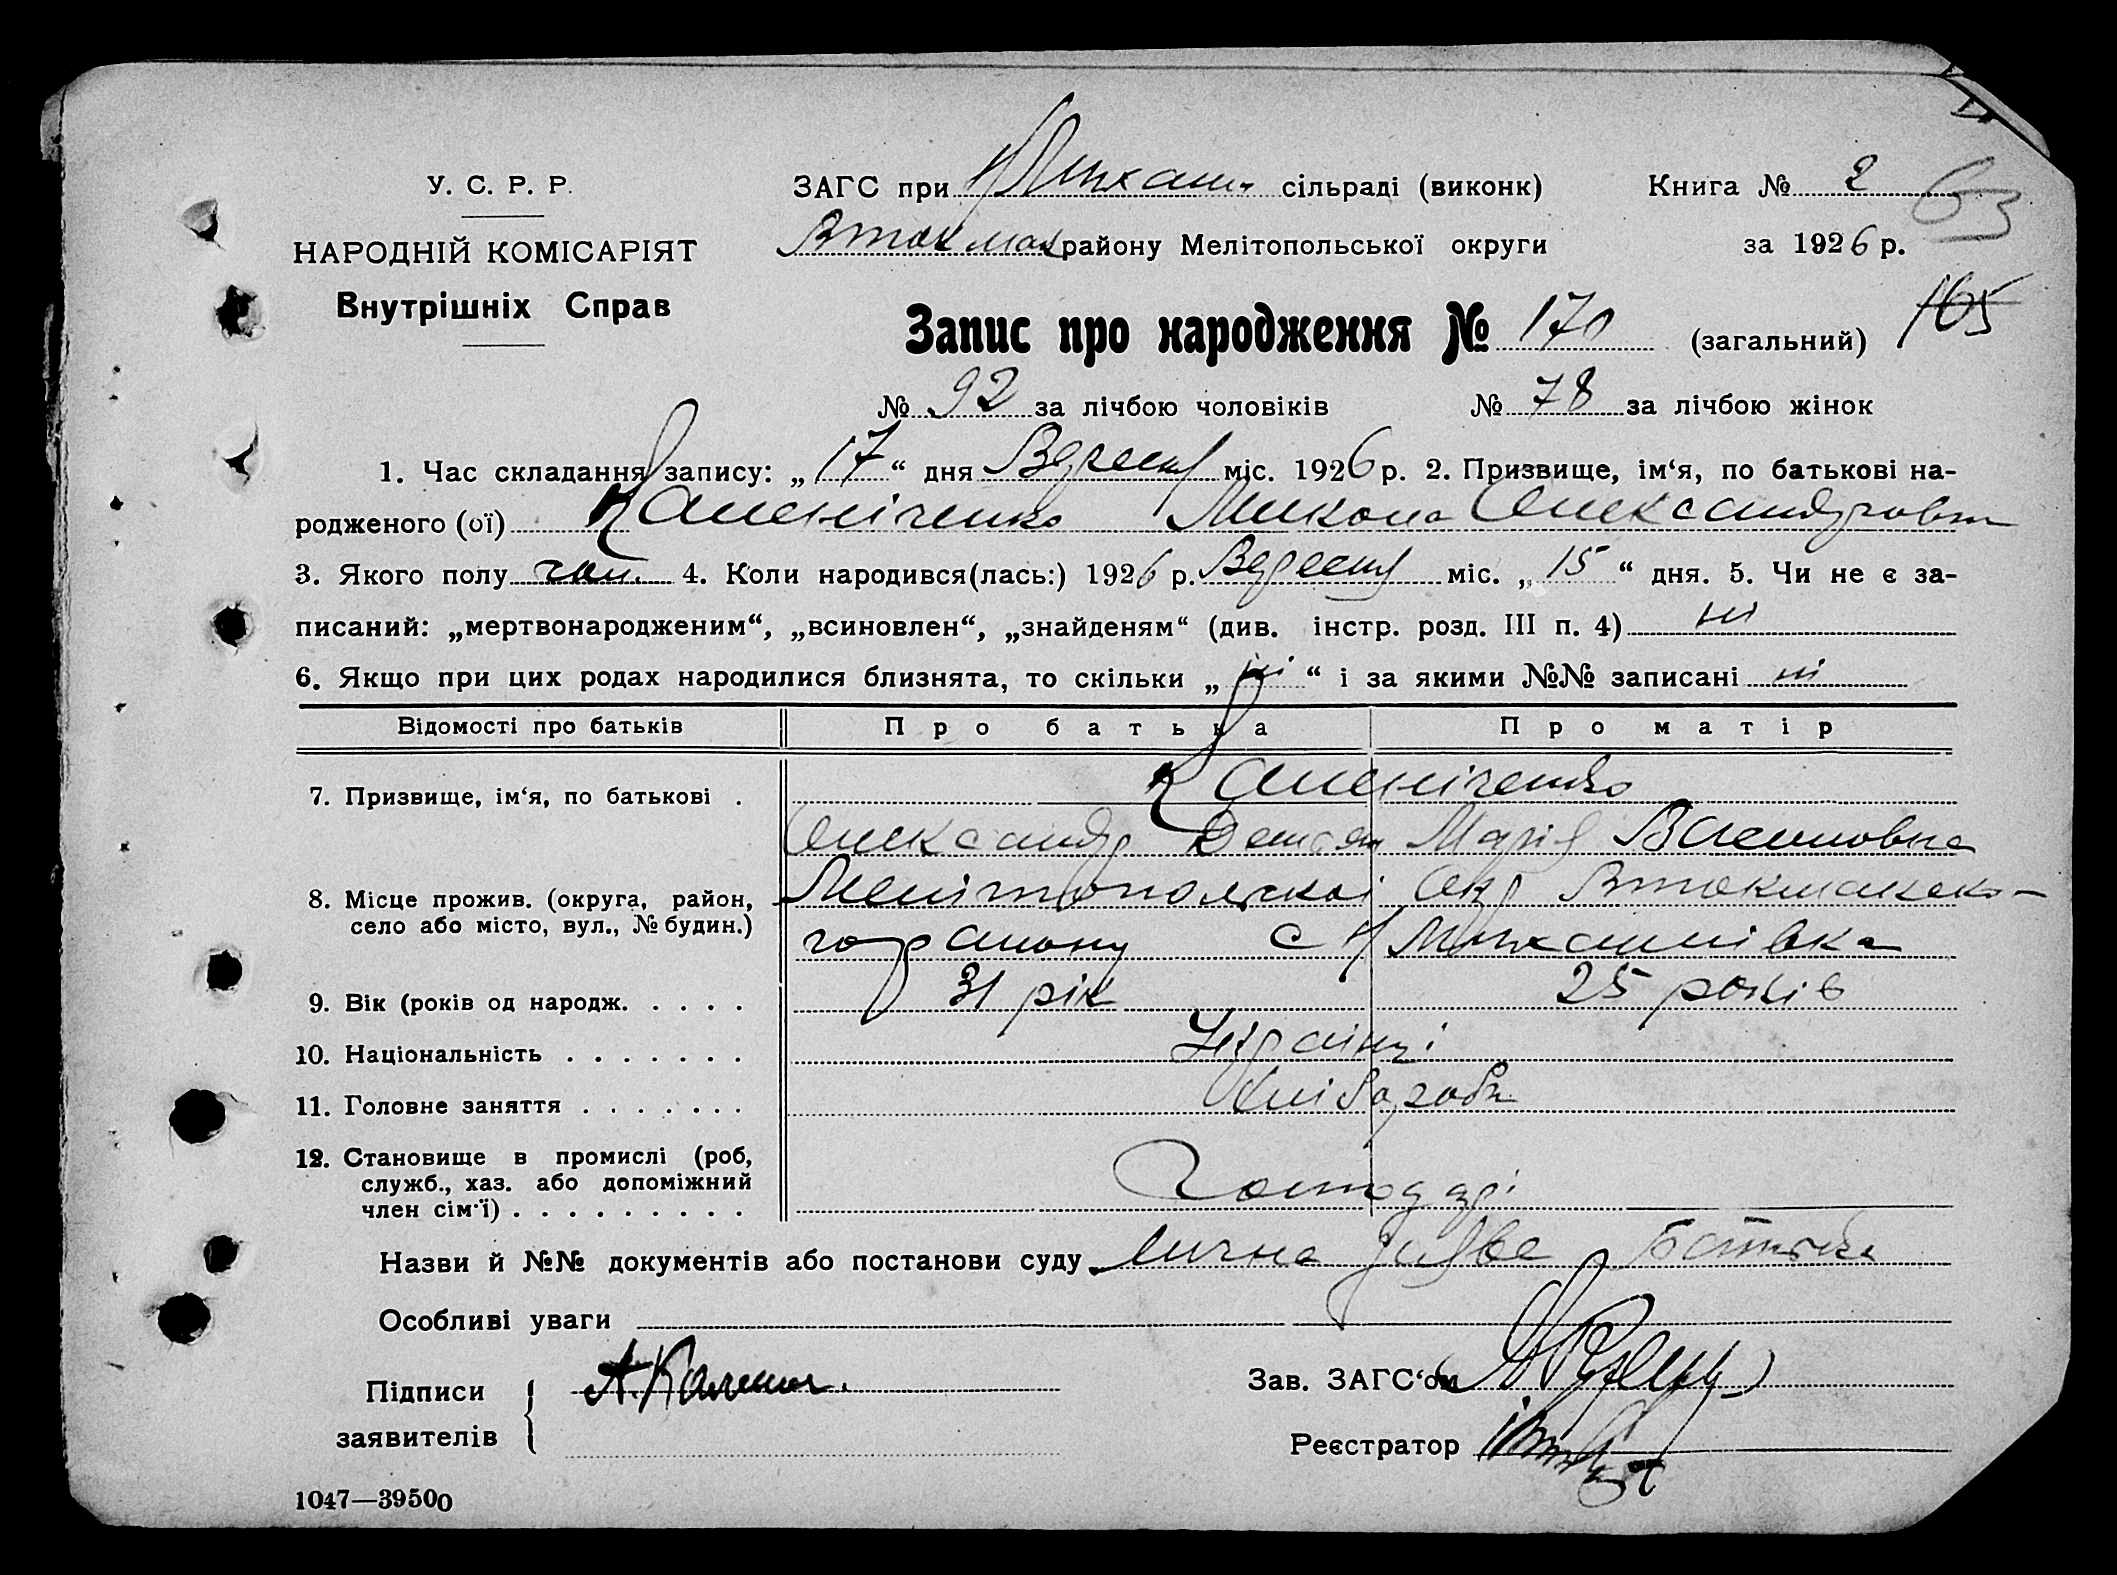 У. С. Р. Р.
НАРОДНІЙ КОМІСАРІЯТ
Внутрішніх Справ
ЗАГС при сільраді (виконк)
Втокмак району Мелітопольської округи
Книга № 2
63
за 1926 р.
Запис про народження № 170 (загальний)
165
№ 92 за лічбою чоловіків № 78 за лічбою жінок
1. Час складання запису: „17“ дня Вересня міс. 1926 р. 2. Призвище, ім‘я, по батькові на-
родженого (ої) Микола Олександрович
3. Якого полу чол. 4. Коли народився(лась:) 1926 р. Вересня міс. „15“ дня. 5. Чи не є за-
писаний: „мертвонародженим“, „всиновлен“, „знайденям“ (див. інстр. розд. III п. 4) ні
6. Якщо при цих родах народилися близнята, то скільки „ні“ і за якими №№ записані ні
Відомості про батьків Про батька Про матір
7. Призвище, ім‘я, по батькові .
Олександр Марія
8. Місце прожив. (округа, район,
село або місто, вул., № будин.)
Мелітопольскої Окр Втокмаксько-
го району с Н Михайлівка
9. Вік (років од народж. . . . . 31 рік 25 років
10. Національність . . . . . . . Українці
11. Головне заняття . . . . . . . Хлібороби
12. Становище в промислі (роб,
служб., хаз. або допоміжний
член сім‘ї) . . . . . . . . . Господарі
Назви й №№ документів або постанови суду лична заява Батька
Особливі уваги
Підписи
заявителів
Зав. ЗАГС‘ом
Реєстратор
1047—39500